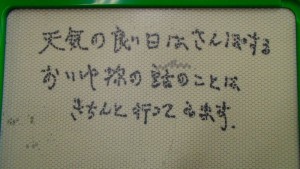 天気の良い日はさんぽする
おりゆ様の話のことは
きちんと行って来ます.